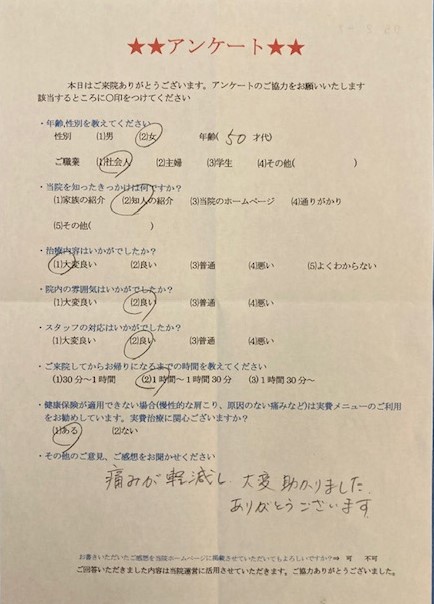 ★★アンケート★★
本日はご来院ありがとうございます。アンケートのご協力をお願いいたします
該当するところに〇印をつけてください
・年齢,性別を教えてください
性別 (1)男 (2)女 年齢( 50 才代)
ご職業 (1)社会人 (2)主婦 (3)学生 (4)その他( )
・当院を知ったきっかけは何ですか?
(1)家族の紹介 (2)知人の紹介 (3)当院のホームページ (4)通りがかり
(5)その他( )
・治療内容はいかがでしたか?
(1)大変良い (2)良い (3)普通 (4)悪い (5)よくわからない
・院内の雰囲気はいかがでしたか?
(1)大変良い (2)良い (3)普通 (4)悪い
・スタッフの対応はいかがでしたか?
(1)大変良い (2)良い (3)普通 (4)悪い
・ご来院してからお帰りになるまでの時間を教えてください
(1)30分~1時間 (2)1時間~1時間30分 (3)1時間30分~
・健康保険が適用できない場合(慢性的な肩こり、原因のない痛みなど)は実費メニューのご利用
をお勧めしています。実費治療に関心ございますか?
(1)ある (2)ない
・その他のご意見、ご感想をお聞かせください
痛みが軽減し 大変助かりました.
ありがとうございます.
お書きいただいたご感想を当院ホームページに掲載させていただいてもよろしいですか?⇒ 可 不可
ご回答いただきました内容は当院運営に活用させていただきます。ご協力ありがとうございました。